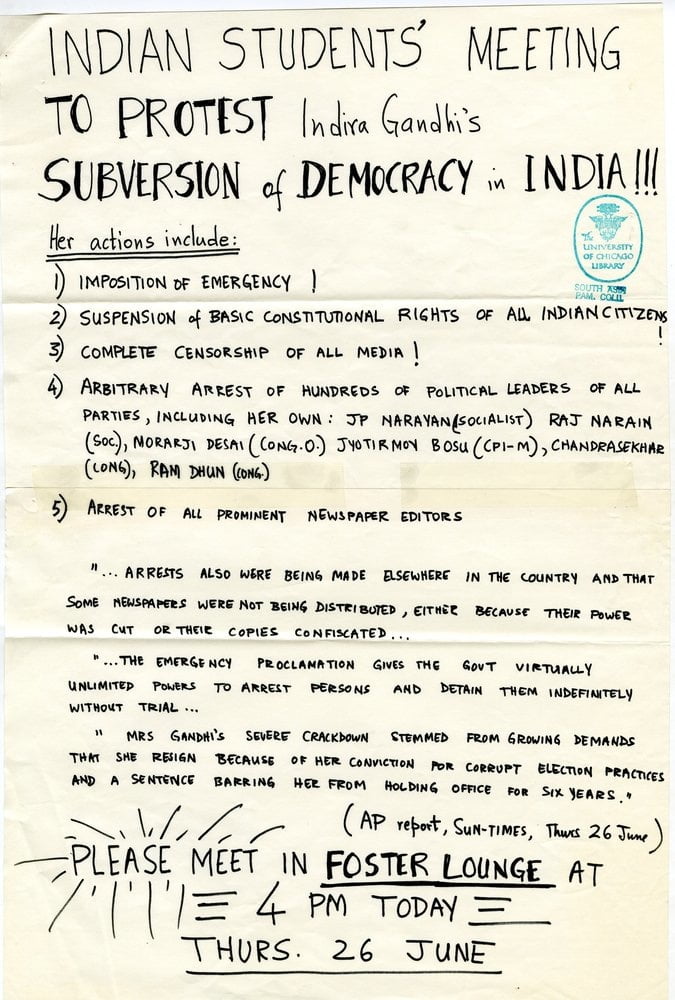 INDIAN STUDENTS' MEETING
TO PROTEST Indira Gandhi's
SUBVERSION of DEMOCRACY in INDIA!!!
Her actions include:
The
UNIVERSITY
OF CHICAGO
LIBRARY
SOUTH ASIA
PAM. COLL.
1) IMPOSITION OF EMERGENCY !
2) SUSPENSION of BASIC CONSTITUTIONAL RIGHTS OF ALL INDIAN CITIZENS
!
3) COMPLETE CENSORSHIP OF ALL MEDIA !
4) ARBITRARY ARREST OF HUNDREDS OF POLITICAL LEADERS OF ALL
PARTIES, INCLUDING HER OWN: JP NARAYAN (SOCIALIST) RAJ NARAIN
(SOC.), MORARJI DESAI (CONG.O.) JYOTIRMOY BOSU (CPI-M), CHANDRASEKHAR
(CONG), RAM DHUN (CONG.)
5) ARREST OF ALL PROMINENT NEWSPAPER EDITORS
"... ARRESTS ALSO WERE BEING MADE ELSEWHERE IN THE COUNTRY AND THAT
SOME NEWSPAPERS WERE NOT BEING DISTRIBUTED, EITHER BECAUSE THEIR POWER
WAS CUT OR THEIR COPIES CONFISCATED...
"...THE EMERGENCY PROCLAMATION GIVES THE GOVT VIRTUALLY
UNLIMITED POWERS TO ARREST PERSONS AND DETAIN THEM INDEFINITELY
WITHOUT TRIAL...
" MRS GANDHI'S SEVERE CRACKDOWN STEMMED FROM GROWING DEMANDS
THAT SHE RESIGN BECAUSE OF HER CONVICTION FOR CORRUPT ELECTION PRACTICES
AND A SENTENCE BARRING HER FROM HOLDING OFFICE FOR SIX YEARS."
(AP report, SUN-TIMES, Thurs 26 June)
PLEASE MEET IN FOSTER LOUNGE AT
4 PM TODAY
THURS. 26 JUNE